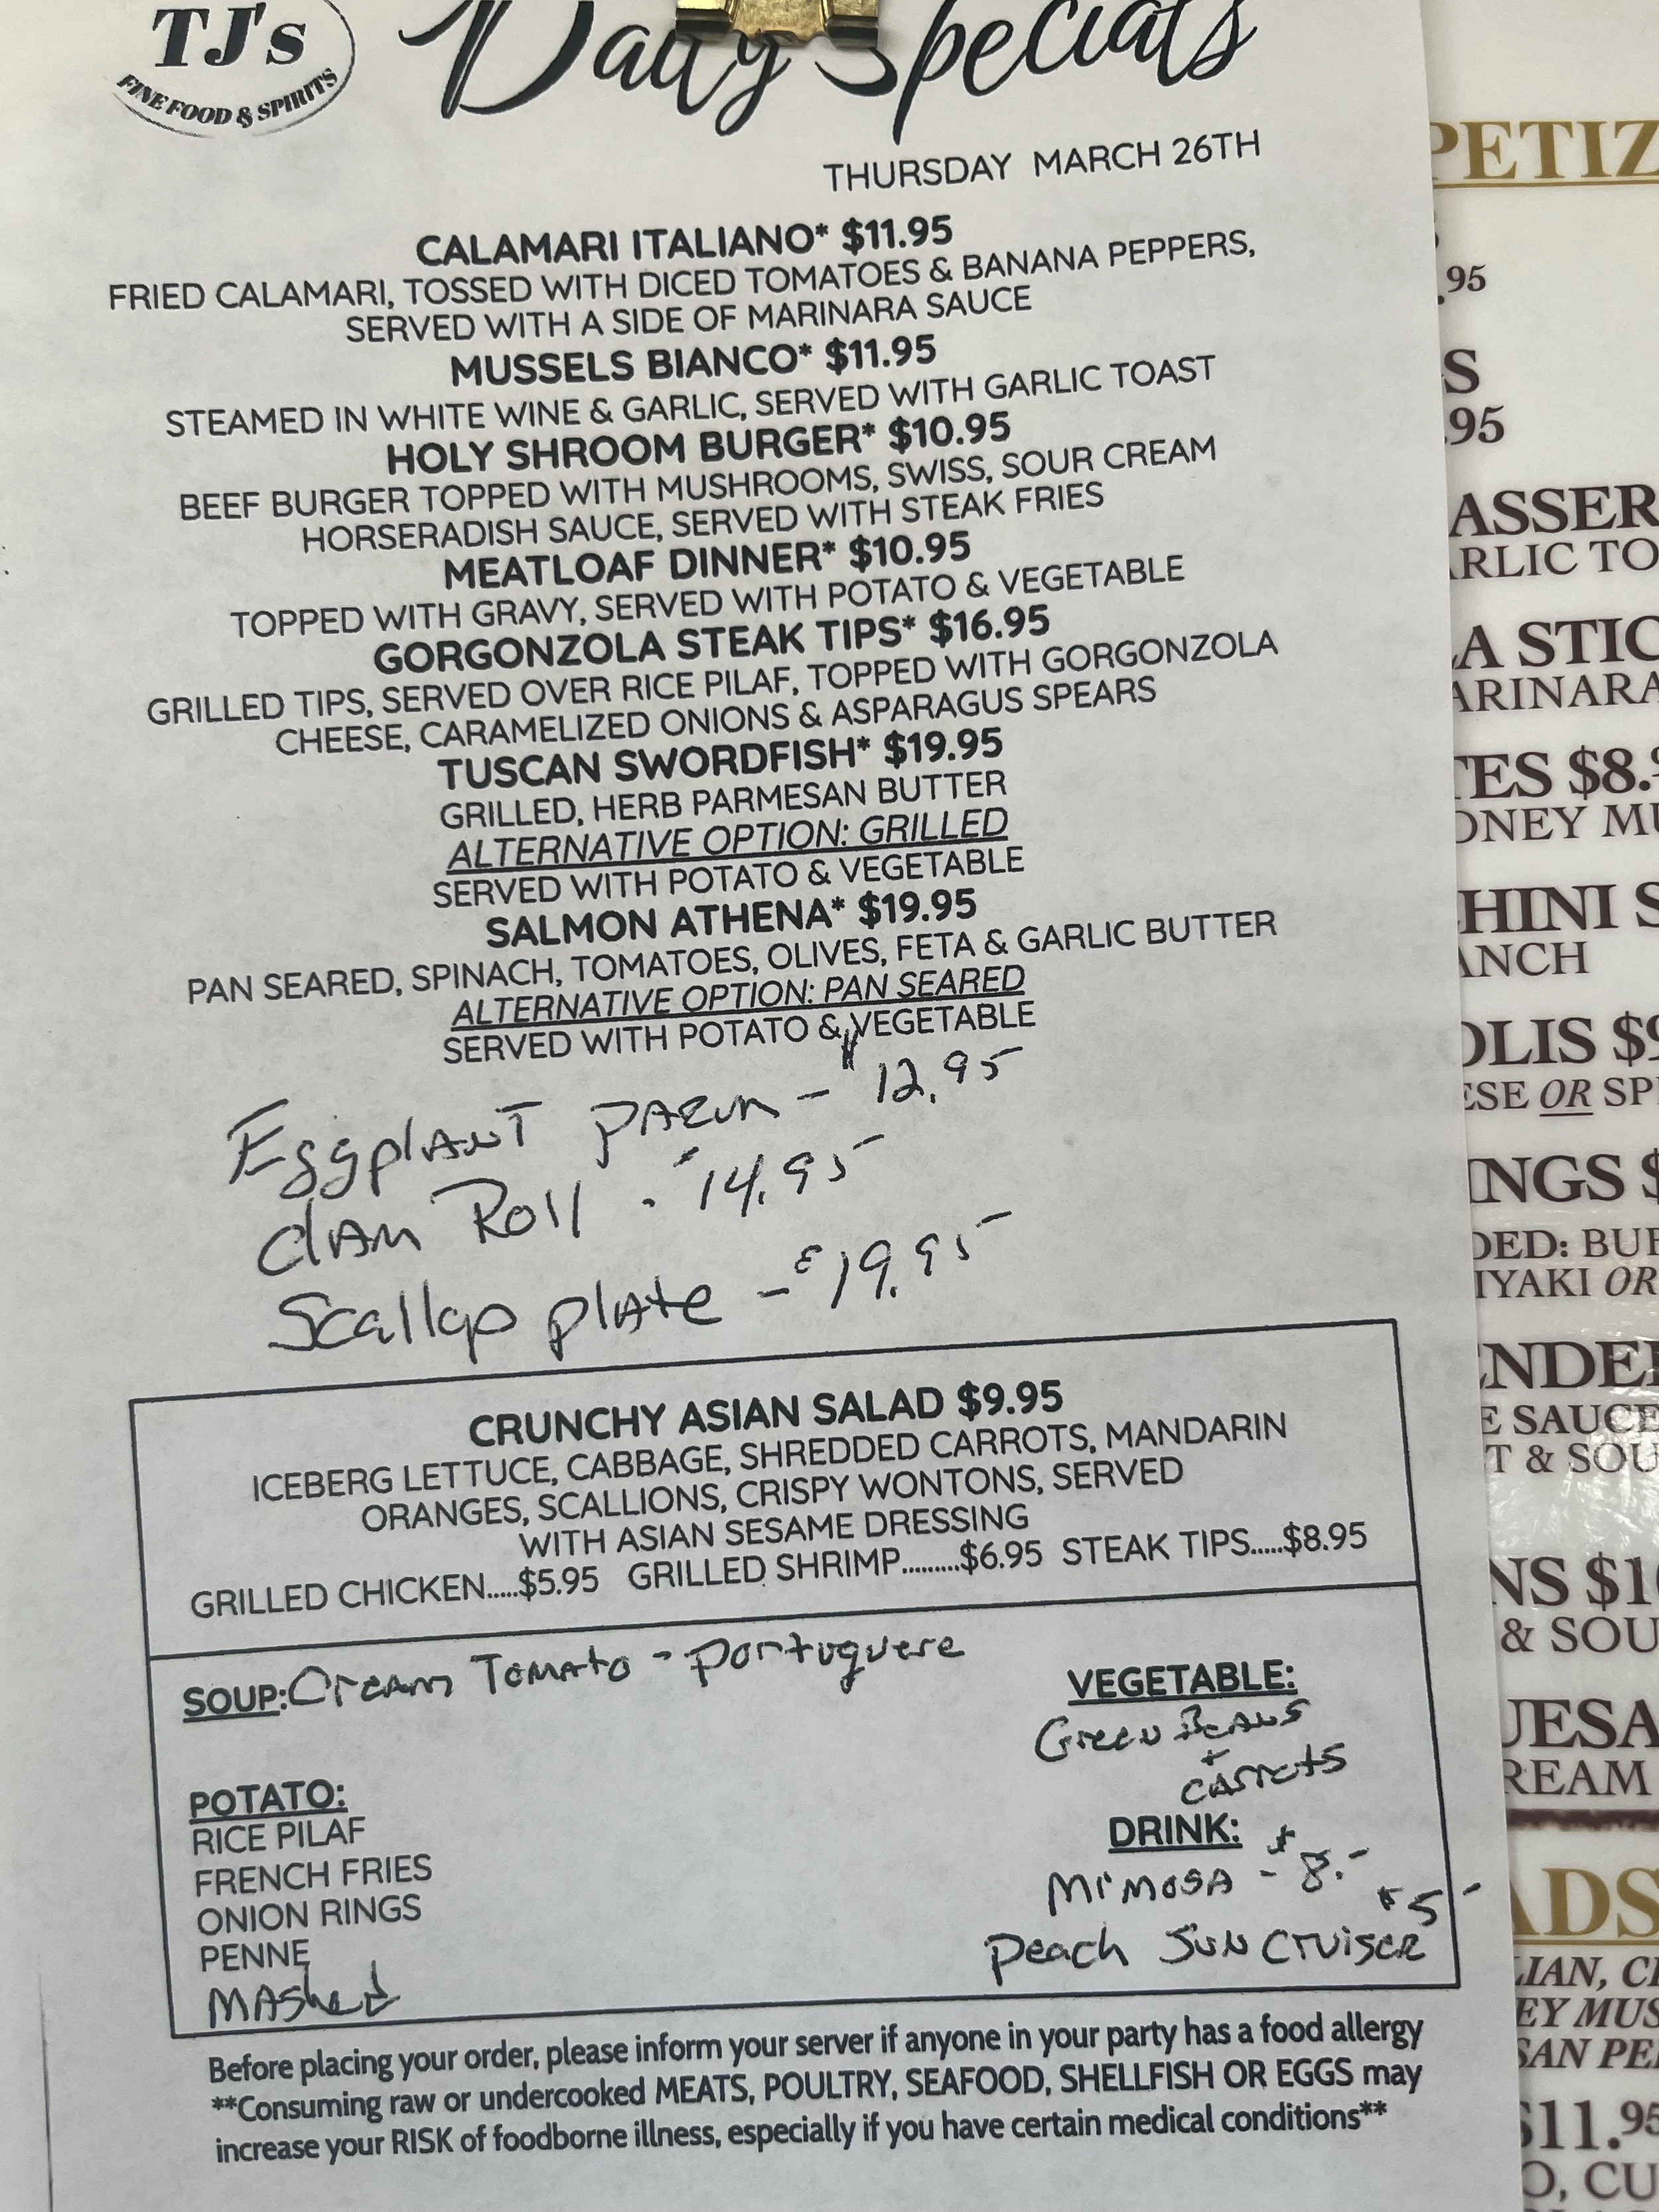 TJ's
FINE FOOD & SPIRITS
Daily Specials
THURSDAY MARCH 26TH
CALAMARI ITALIANO* $11.95
FRIED CALAMARI, TOSSED WITH DICED TOMATOES & BANANA PEPPERS,
SERVED WITH A SIDE OF MARINARA SAUCE
MUSSELS BIANCO* $11.95
STEAMED IN WHITE WINE & GARLIC, SERVED WITH GARLIC TOAST
HOLY SHROOM BURGER* $10.95
BEEF BURGER TOPPED WITH MUSHROOMS, SWISS, SOUR CREAM
HORSERADISH SAUCE, SERVED WITH STEAK FRIES
MEATLOAF DINNER* $10.95
TOPPED WITH GRAVY, SERVED WITH POTATO & VEGETABLE
GORGONZOLA STEAK TIPS* $16.95
GRILLED TIPS, SERVED OVER RICE PILAF, TOPPED WITH GORGONZOLA
CHEESE, CARAMELIZED ONIONS & ASPARAGUS SPEARS
TUSCAN SWORDFISH* $19.95
GRILLED, HERB PARMESAN BUTTER
ALTERNATIVE OPTION: GRILLED
SERVED WITH POTATO & VEGETABLE
SALMON ATHENA* $19.95
PAN SEARED, SPINACH, TOMATOES, OLIVES, FETA & GARLIC BUTTER
ALTERNATIVE OPTION: PAN SEARED
SERVED WITH POTATO & VEGETABLE
Eggplant parm - $12.95
Clam Roll - $14.95
Scallop plate - $19.95
CRUNCHY ASIAN SALAD $9.95
ICEBERG LETTUCE, CABBAGE, SHREDDED CARROTS, MANDARIN
ORANGES, SCALLIONS, CRISPY WONTONS, SERVED
WITH ASIAN SESAME DRESSING
GRILLED CHICKEN.....$5.95 GRILLED SHRIMP.........$6.95 STEAK TIPS.....$8.95
SOUP: Cream Tomato - Portuguese
VEGETABLE:
Green Beans
+
carrots
POTATO:
RICE PILAF
FRENCH FRIES
ONION RINGS
PENNE
MAshed
DRINK:
Mimosa - $8.-
$5-
Peach Sun Cruiser
Before placing your order, please inform your server if anyone in your party has a food allergy
**Consuming raw or undercooked MEATS, POULTRY, SEAFOOD, SHELLFISH OR EGGS may
increase your RISK of foodborne illness, especially if you have certain medical conditions**
PETIZ
.95
S
.95
ASSER
ARLIC TO
A STIC
ARINARA
TES $8.
ONEY MU
HINI S
ANCH
OLIS $9
ESE OR SPI
INGS $
DED: BUF
IYAKI OR
ENDER
E SAUCE
T & SOU
NS $10
& SOU
UESA
REAM
ADS
LIAN, C
EY MUS
SAN PE
$11.95
O, CU